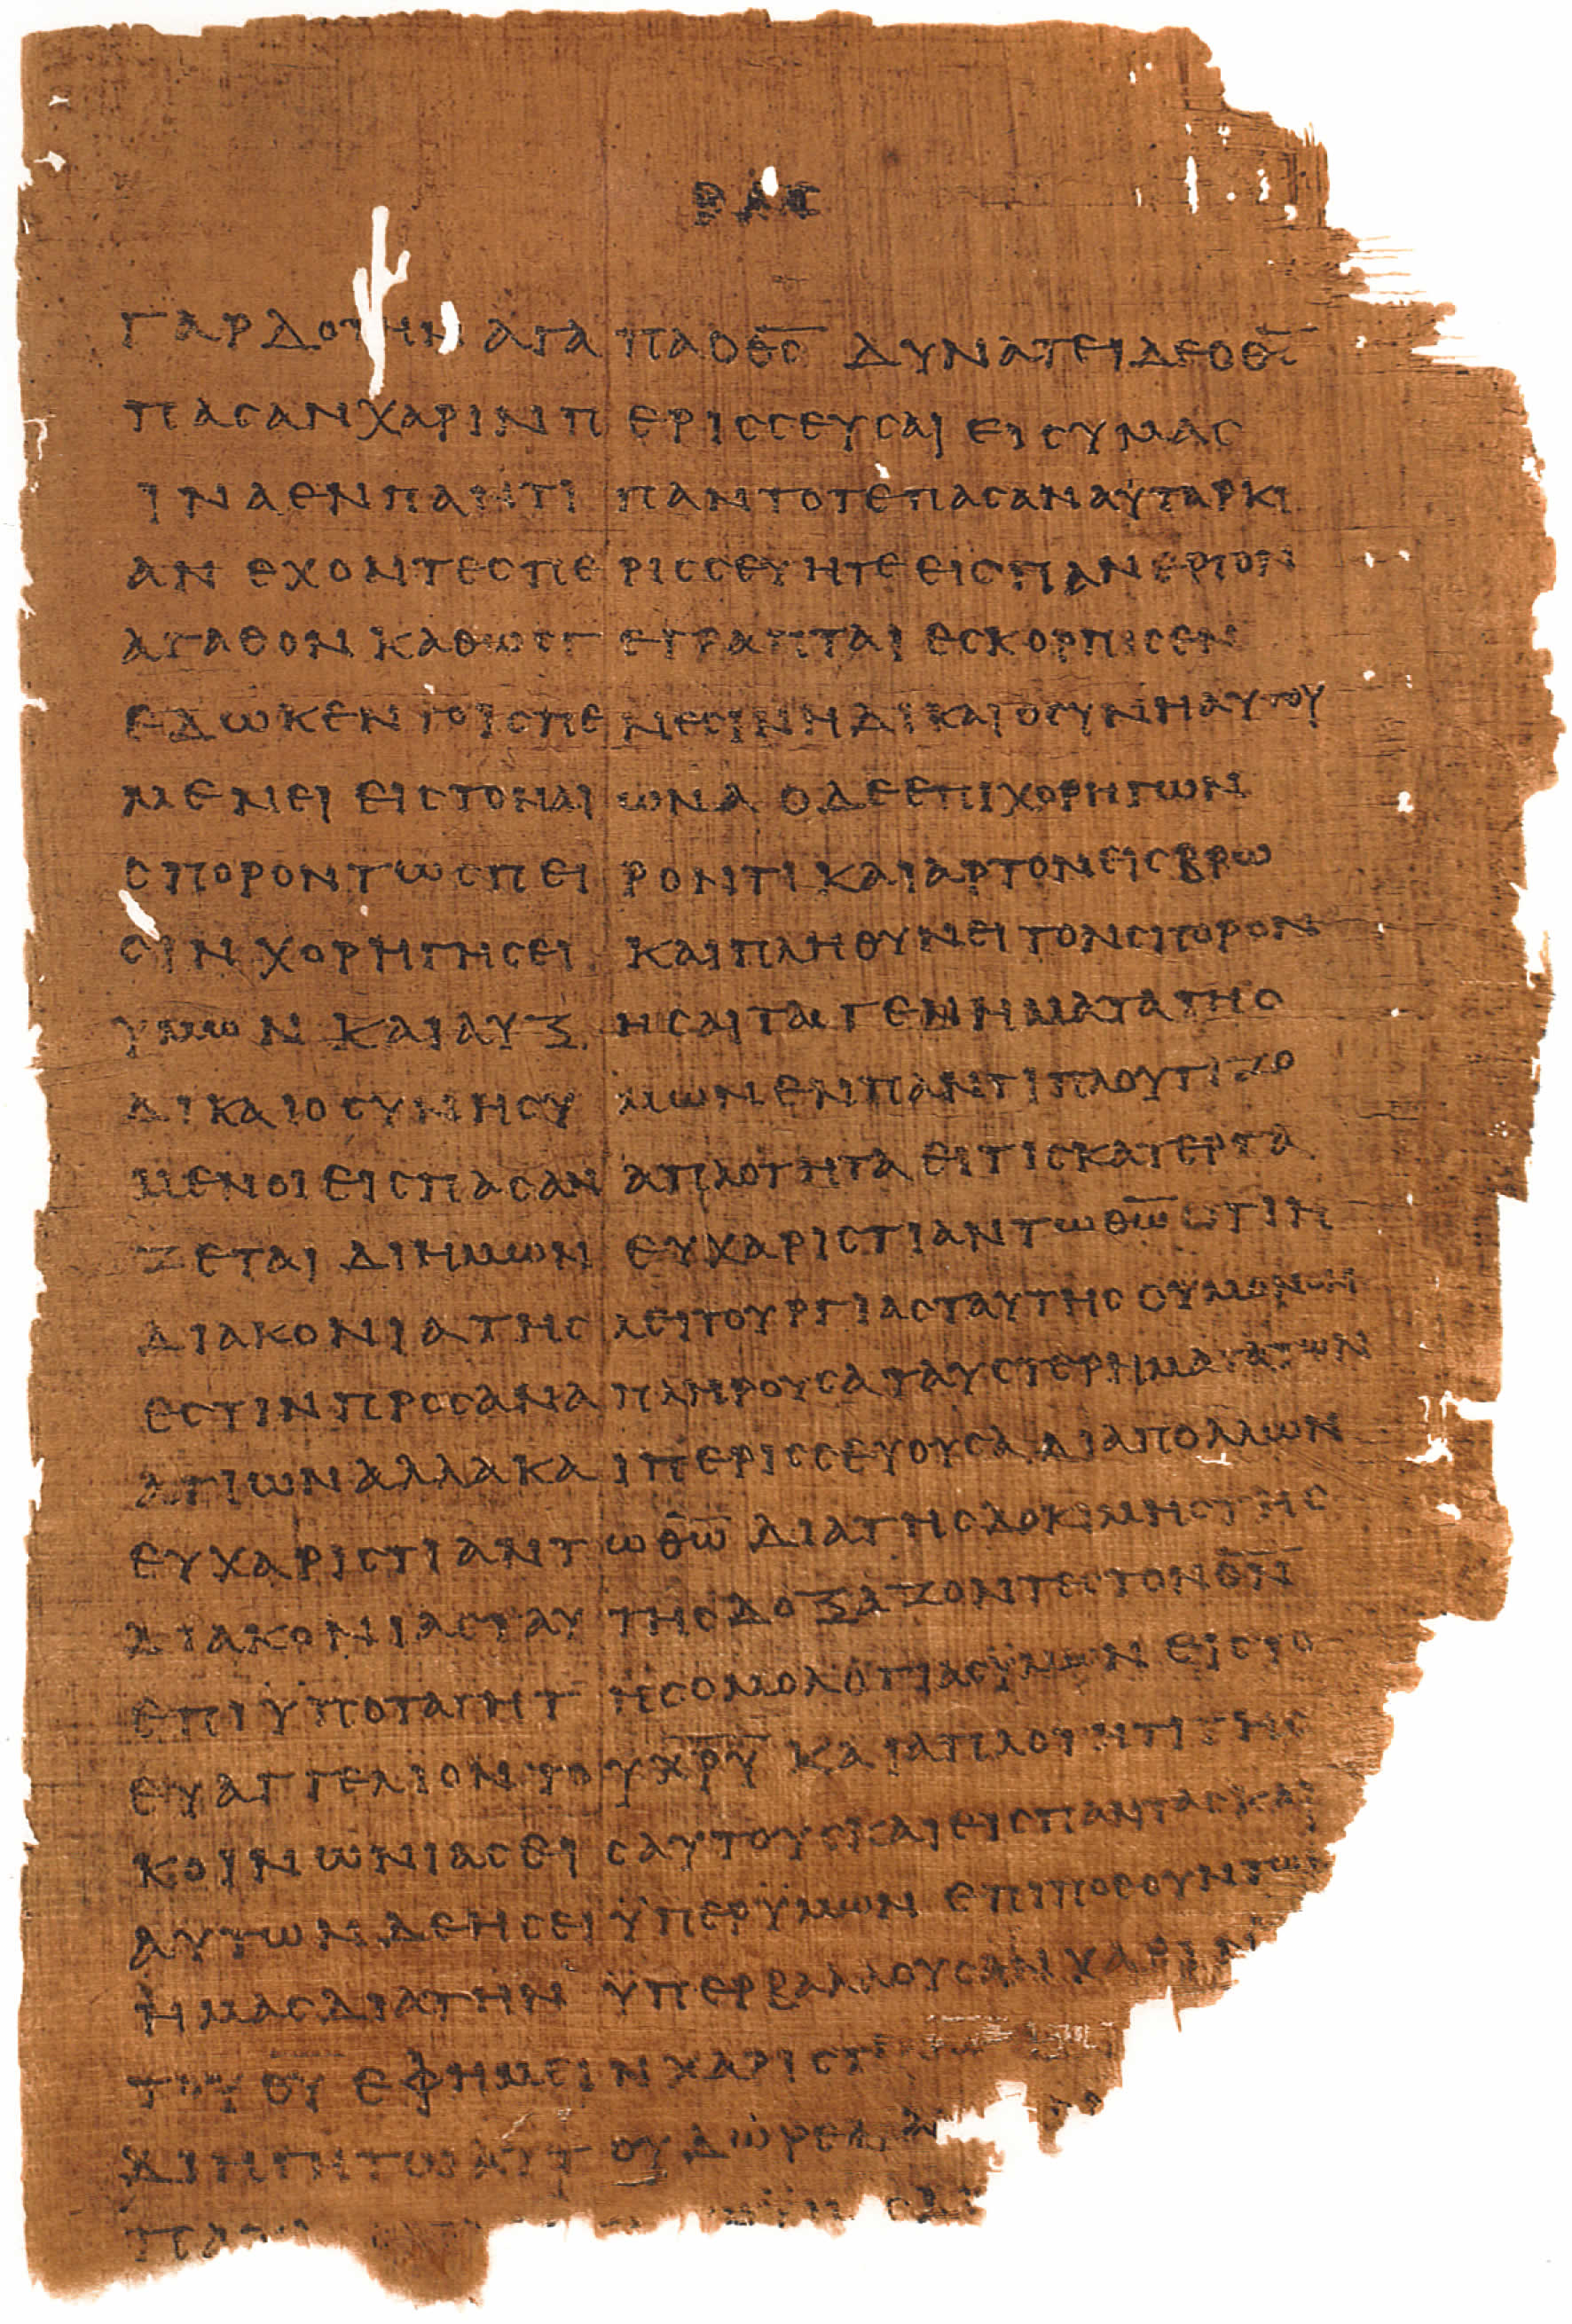 ΓΑΡΔΟΤΗΝ ΑΓΑΠΑ Ο Θ̅Ϲ̅ ΔΥΝΑΤΕΙ ΔΕ Ο Θ̅Ϲ̅
ΠΑϹΑΝ ΧΑΡΙΝ ΠΕΡΙϹϹΕΥϹΑΙ ΕΙϹ ΥΜΑϹ
ΙΝΑ ΕΝ ΠΑΝΤΙ ΠΑΝΤΟΤΕ ΠΑϹΑΝ ΑΥΤΑΡΚΙ
ΑΝ ΕΧΟΝΤΕϹ ΠΕΡΙϹϹΕΥΗΤΕ ΕΙϹ ΠΑΝ ΕΡΓΟΝ
ΑΓΑΘΟΝ ΚΑΘΩϹ ΓΕΓΡΑΠΤΑΙ ΕϹΚΟΡΠΙϹΕΝ
ΕΔΩΚΕΝ ΤΟΙϹ ΠΕΝΕϹΙΝ Η ΔΙΚΑΙΟϹΥΝΗ ΑΥΤΟΥ
ΜΕΝΕΙ ΕΙϹ ΤΟΝ ΑΙΩΝΑ Ο ΔΕ ΕΠΙΧΟΡΗΓΩΝ
ϹΠΟΡΟΝ ΤΩ ϹΠΕΙΡΟΝΤΙ ΚΑΙ ΑΡΤΟΝ ΕΙϹ ΒΡΩ
ϹΙΝ ΧΟΡΗΓΗϹΕΙ ΚΑΙ ΠΛΗΘΥΝΕΙ ΤΟΝ ϹΠΟΡΟΝ
ΥΜΩΝ ΚΑΙ ΑΥΞΗϹΑΙ ΤΑ ΓΕΝΗΜΑΤΑ ΤΗϹ
ΔΙΚΑΙΟϹΥΝΗϹ ΥΜΩΝ ΕΝ ΠΑΝΤΙ ΠΛΟΥΤΙΖΟ
ΜΕΝΟΙ ΕΙϹ ΠΑϹΑΝ ΑΠΛΟΤΗΤΑ ΕΙ ΤΙϹ ΚΑΤΕΡΓΑ
ΖΕΤΑΙ ΔΙ ΗΜΩΝ ΕΥΧΑΡΙϹΤΙΑΝ ΤΩ Θ̅Ω̅ ΟΤΙ Η
ΔΙΑΚΟΝΙΑ ΤΗϹ ΛΕΙΤΟΥΡΓΙΑϹ ΤΑΥΤΗϹ ΟΥ ΜΟΝΟΝ
ΕϹΤΙΝ ΠΡΟϹΑΝΑΠΛΗΡΟΥϹΑ ΤΑ ΥϹΤΕΡΗΜΑΤΑ ΤΩΝ
ΑΓΙΩΝ ΑΛΛΑ ΚΑΙ ΠΕΡΙϹϹΕΥΟΥϹΑ ΔΙΑ ΠΟΛΛΩΝ
ΕΥΧΑΡΙϹΤΙΑΝ ΤΩ Θ̅Ω̅ ΔΙΑ ΤΗϹ ΔΟΚΙΜΗϹ ΤΗϹ
ΔΙΑΚΟΝΙΑϹ ΤΑΥΤΗϹ ΔΟΞΑΖΟΝΤΕϹ ΤΟΝ Θ̅Ν̅
ΕΠΙ ΫΠΟΤΑΓΗ ΤΗϹ ΟΜΟΛΟΓΙΑϹ ΫΜΩΝ ΕΙϹ ΤΟ
ΕΥΑΓΓΕΛΙΟΝ ΤΟΥ Χ̅Ρ̅Υ̅ ΚΑΙ ΑΠΛΟΤΗΤΙ ΤΗϹ
ΚΟΙΝΩΝΙΑϹ ΕΙϹ ΑΥΤΟΥϹ ΚΑΙ ΕΙϹ ΠΑΝΤΑϹ ΚΑΙ
ΑΥΤΩΝ ΔΕΗϹΕΙ ΫΠΕΡ ΫΜΩΝ ΕΠΙΠΟΘΟΥΝΤΩΝ
ΗΜΑϹ ΔΙΑ ΤΗΝ ΫΠΕΡΒΑΛΛΟΥϹΑΝ ΧΑΡΙΝ
ΤΟΥ Θ̅Υ̅ ΕΦ ΗΜΕΙΝ ΧΑΡΙϹ
ΔΙΗΓΗΤΩ ΑΥΤΟΥ ΔΩΡΕΑ